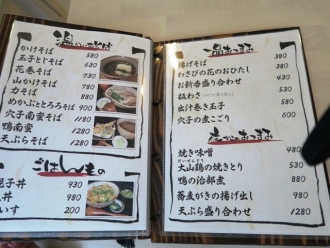 温かいそば
かけそば 580
玉子とじそば 630
花巻そば 930
山かけそば 980
力そば 980
めかぶとろろそば 900
穴子南蛮そば 1180
鴨南蛮 1280
天ぷらそば 1280
ごはんもの
親子丼 930
丼 980
いす 200
揚げそば 380
わさびの花のおひたし 380
お新香盛り合わせ 480
板わさ 580
出汁巻き玉子 580
穴子の煮こごり 600
焼き味噌 480
大山鶏の焼きとり 530
鴨の治部煮 880
蕎麦がきの揚げ出し 980
天ぷら盛り合わせ 1280